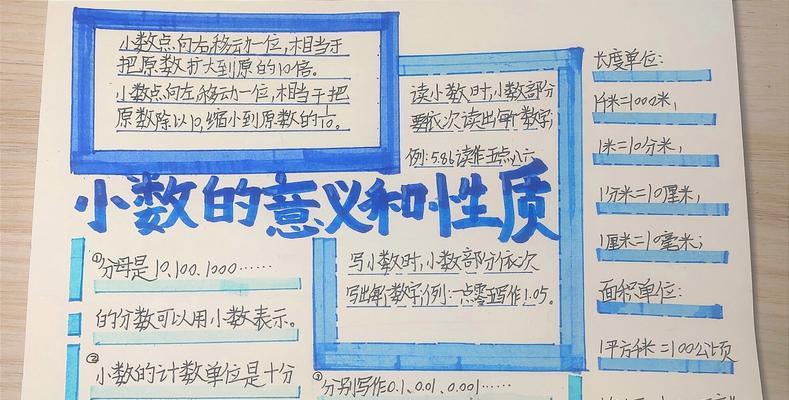 小数点向右移动一位,相当于
把原数扩大到原的10倍。
小数点向左移动一位,相当于把
原数除以10,缩小到原数的1/10。
读小数时,小数部分
要依次读出每个数字;
例:5.86读作五点八六
小数的意义和性质
①分母是10.100.1000……
的分数可以用小数表示。
②
小数的计数单位是十分
写小数时,小数部分依次
写出每个数字;例:一点零五写作1.05。
③分别写作0.1、0.01、0.001……
长度单位:
1千米=1000米,
1米=10分米,
1分米=10厘米,
1厘米=10毫米;
面积单位:
1平方千米=100公顷